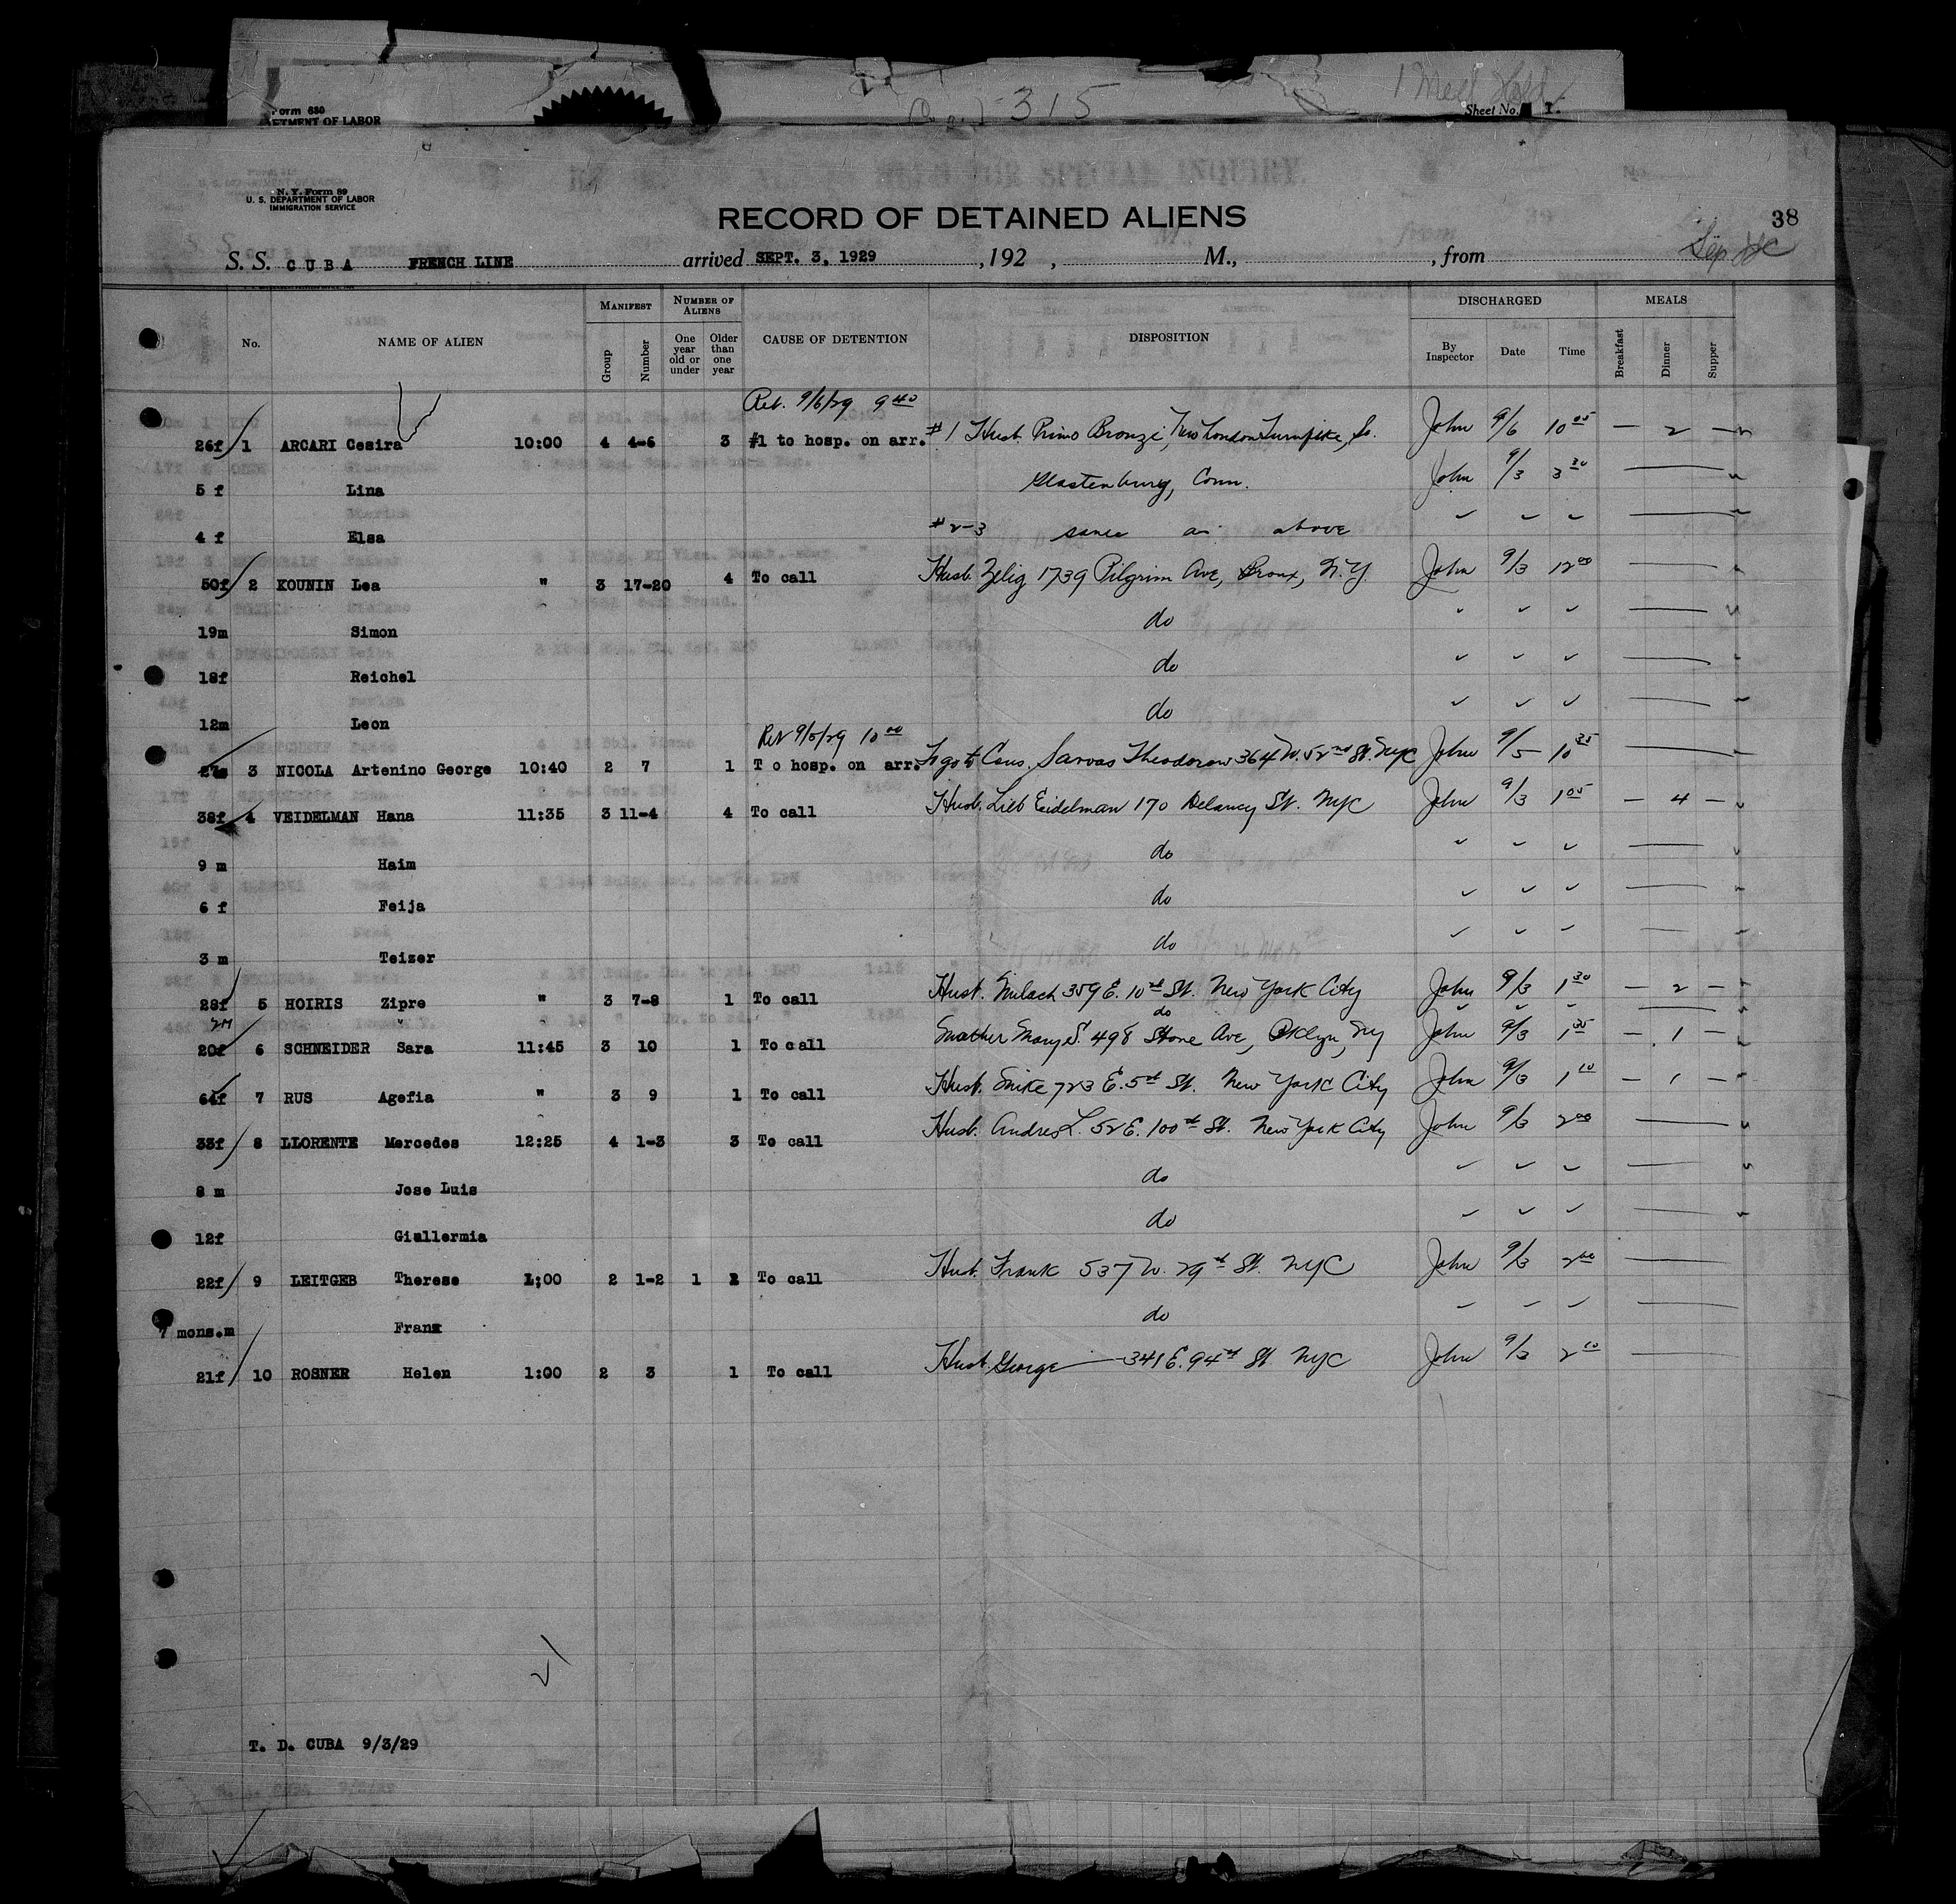 Form 630
DEPARTMENT OF LABOR
315
1 Meal Held
Sheet No. 1.
N. Y. Form 89
U. S. DEPARTMENT OF LABOR
IMMIGRATION SERVICE
RECORD OF DETAINED ALIENS
38
S. S. CUBA FRENCH LINE arrived SEPT. 3, 1929 , 192 , M., , from
No. NAME OF ALIEN MANIFEST Group Number NUMBER OF ALIENS One year old or under Older than one year CAUSE OF DETENTION DISPOSITION DISCHARGED By Inspector Date Time MEALS Breakfast Dinner Supper
Ret. 9/6/29 9 40
26f 1 ARCARI Cesira 10:00 4 4-6 3 #1 to hosp. on arr. #1 Husb. Primo Bronzi, New London Turnpike, So. John 9/6 10 05 — 2 —
5 f Lina Glastenbury, Conn. John 9/3 3 30
4 f Elsa #2-3 same as above
50f 2 KOUNIN Lea " 3 17-20 4 To call Husb. Zelig 1739 Pilgrim Ave, Bronx, N.Y. John 9/3 12 00
19m Simon do
18f Reichel do
12m Leon do
Ret 9/5/29 10 00
3 NICOLA Artenino George 10:40 2 7 1 T o hosp. on arr. to Cous. Savvas Theodorow 364 W. 52nd St. NYC John 9/5 10 35
38f 4 VEIDELMAN Hana 11:35 3 11-4 4 To call Husb. Lieb Eidelman 170 Delancy St. NYC John 9/3 1 05 — 4 —
9 m Haim do
6 f Feija do
3 m Teizer do
28f 5 HOIRIS Zipre " 3 7-8 1 To call Husb. 359 E. 10th St. New York City John 9/3 1 30 — 2 —
2M " do
20f 6 SCHNEIDER Sara 11:45 3 10 1 To call Mother Mary S. 498 Stone Ave, Bklyn, NY John 9/3 1 35 — 1 —
64f 7 RUS Agefia " 3 9 1 To call Husb. Mike 723 E. 5th St. New York City John 9/3 1 10 — 1 —
33f 8 LLORENTE Mercedes 12:25 4 1-3 3 To call Husb. Andres L. 52 E. 100th St. New York City John 9/3 2 00
8 m Jose Luis do
12f Giallermia do
22f 9 LEITGEB Therese 1:00 2 1-2 1 1 To call Husb. Frank 537 W. 29th St. NYC John 9/3 2 00
7 mons.m Franz do
21f 10 ROSNER Helen 1:00 2 3 1 To call Husb. George 341 E. 94th St NYC John 9/3 2 10
21
T. D. CUBA 9/3/29